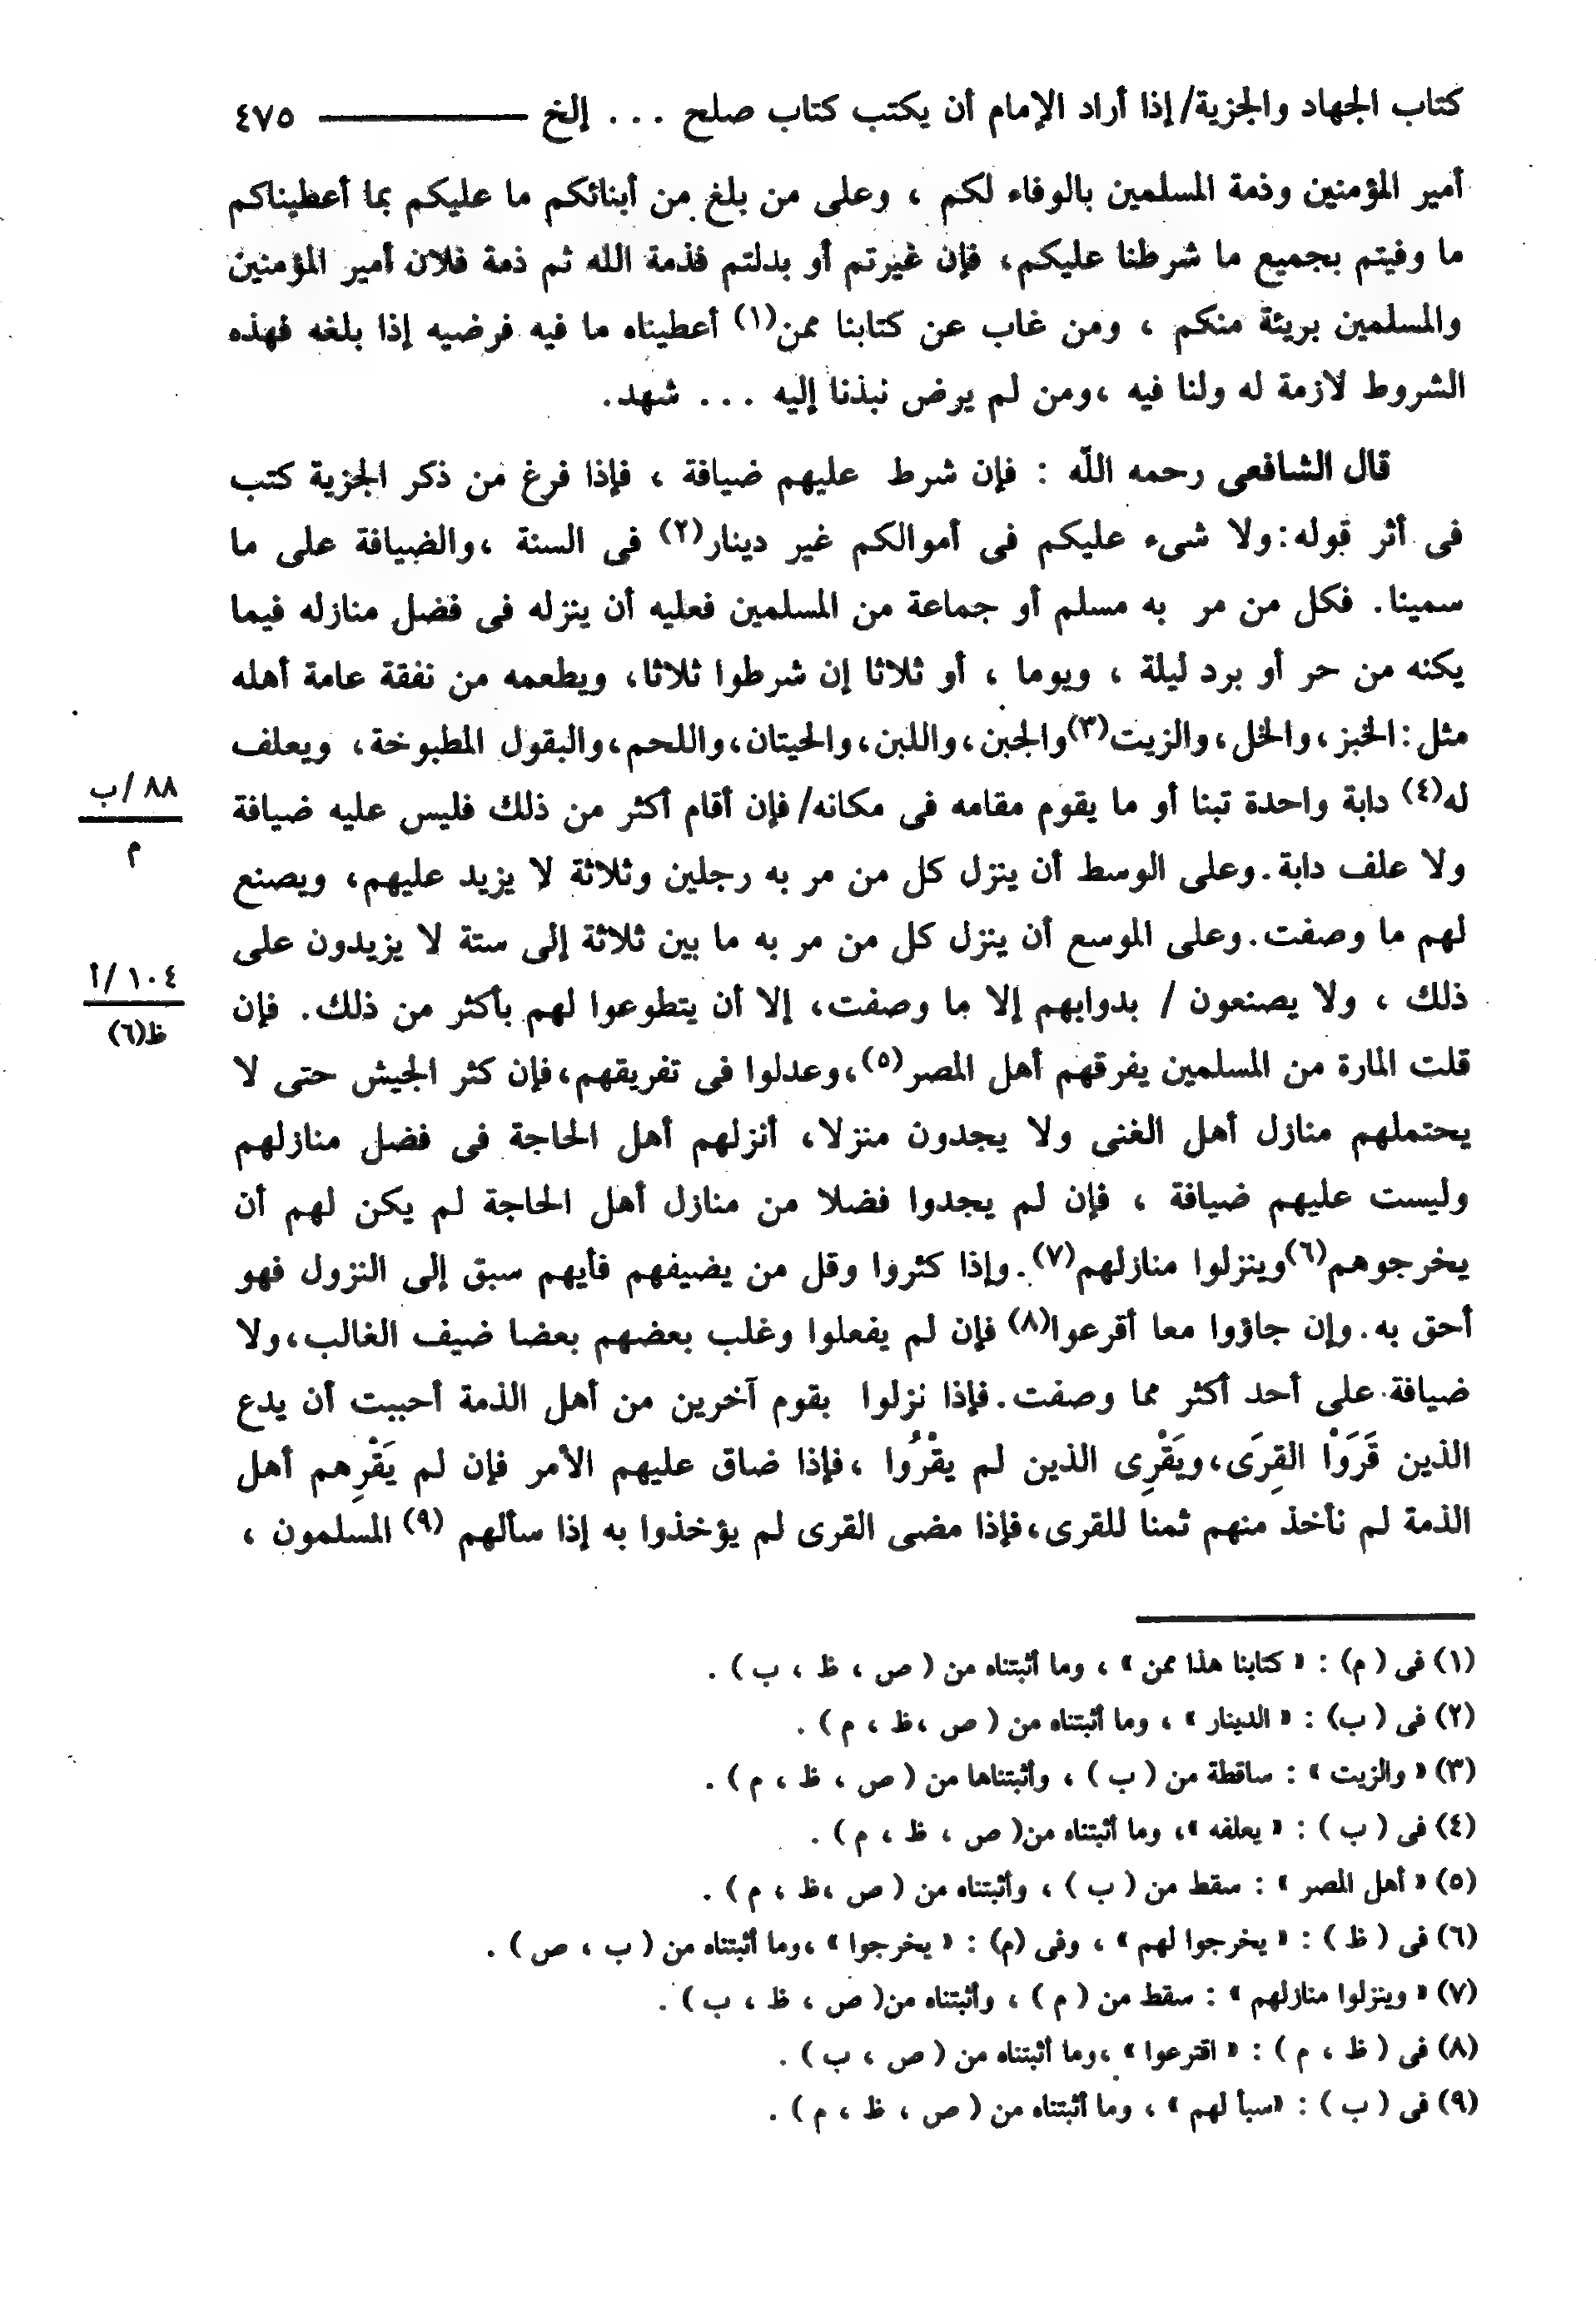 كتاب الجهاد والجزية/ إذا أراد الإمام أن يكتب كتاب صلح ... إلخ ٤٧٥
أمير المؤمنين وذمة المسلمين بالوفاء لكم ، وعلى من بلغ من أبنائكم ما عليكم بما أعطيناكم
ما وفيتم بجميع ما شرطنا عليكم، فإن غيرتم أو بدلتم فذمة الله ثم ذمة فلان أمير المؤمنين
والمسلمين بريئة منكم ، ومن غاب عن كتابنا ممن(١) أعطيناه ما فيه فرضيه إذا بلغه فهذه
الشروط لازمة له ولنا فيه ،ومن لم يرض نبذنا إليه ... شهد.
قال الشافعى رحمه اللّه : فإن شرط عليهم ضيافة ، فإذا فرغ من ذكر الجزية كتب
فى أثر قوله:ولا شىء عليكم فى أموالكم غير دينار(٢) فى السنة ،والضيافة على ما
سمينا. فكل من مر به مسلم أو جماعة من المسلمين فعليه أن ينزله فى فضل منازله فيما
يكنه من حر أو برد ليلة ، ويوما ، أو ثلاثا إن شرطوا ثلاثا، ويطعمه من نفقة عامة أهله
مثل:الخبز،والخل،والزيت(٣)والجبن،واللبن،والحيتان،واللحم،والبقول المطبوخة، ويعلف
له(٤) دابة واحدة تبنا أو ما يقوم مقامه فى مكانه/ فإن أقام أكثر من ذلك فليس عليه ضيافة
٨٨ /ب
م
ولا علف دابة.وعلى الوسط أن ينزل كل من مر به رجلين وثلاثة لا يزيد عليهم، ويصنع
لهم ما وصفت.وعلى الموسع أن ينزل كل من مر به ما بين ثلاثة إلى ستة لا يزيدون على
ذلك ، ولا يصنعون / بدوابهم إلا ما وصفت، إلا أن يتطوعوا لهم بأكثر من ذلك. فإن
١٠٤ /أ
ظ(٦)
قلت المارة من المسلمين يفرقهم أهل المصر(٥)،وعدلوا فى تفريقهم،فإن كثر الجيش حتى لا
يحتملهم منازل أهل الغنى ولا يجدون منزلا، أنزلهم أهل الحاجة فى فضل منازلهم
وليست عليهم ضيافة ، فإن لم يجدوا فضلا من منازل أهل الحاجة لم يكن لهم أن
يخرجوهم(٦)وينزلوا منازلهم(٧).وإذا كثروا وقل من يضيفهم فأيهم سبق إلى النزول فهو
أحق به.وإن جاؤوا معا أقرعوا(٨) فإن لم يفعلوا وغلب بعضهم بعضا ضيف الغالب،ولا
ضيافة على أحد أكثر مما وصفت.فإذا نزلوا بقوم آخرين من أهل الذمة أحببت أن يدع
الذين قَرَوْا القِرَى،ويَقْرِى الذين لم يقْرُوا ،فإذا ضاق عليهم الأمر فإن لم يَقْرِهم أهل
الذمة لم نأخذ منهم ثمنا للقرى،فإذا مضى القرى لم يؤخذوا به إذا سألهم (٩) المسلمون ،
(١) فى ( م) : « كتابنا هذا ممن » ، وما أثبتناه من ( ص ، ظ ، ب ) .
(٢) فى ( ب) : « الدينار » ، وما أثبتناه من ( ص ،ظ ، م ) .
(٣) « والزيت » : ساقطة من ( ب ) ، وأثبتناها من ( ص ، ظ ، م ) .
(٤) فى ( ب ) : « يعلفه »، وما أثبتناه من( ص ، ظ ، م ) .
(٥) « أهل المصر » : سقط من ( ب ) ، وأثبتناه من ( ص ،ظ ، م ) .
(٦) فى ( ظ ) : « يخرجوا لهم » ، وفى (م) : « يخرجوا » ،وما أثبتناه من ( ب ، ص ) .
(٧) « وينزلوا منازلهم » : سقط من ( م ) ، وأثبتناه من( ص ، ظ ، ب ) .
(٨) فى ( ظ ، م ) : « اقترعوا » ،وما أثبتناه من ( ص ، ب ) .
(٩) فى ( ب ) : «سبأ لهم » ، وما أثبتناه من ( ص ، ظ ، م ) .